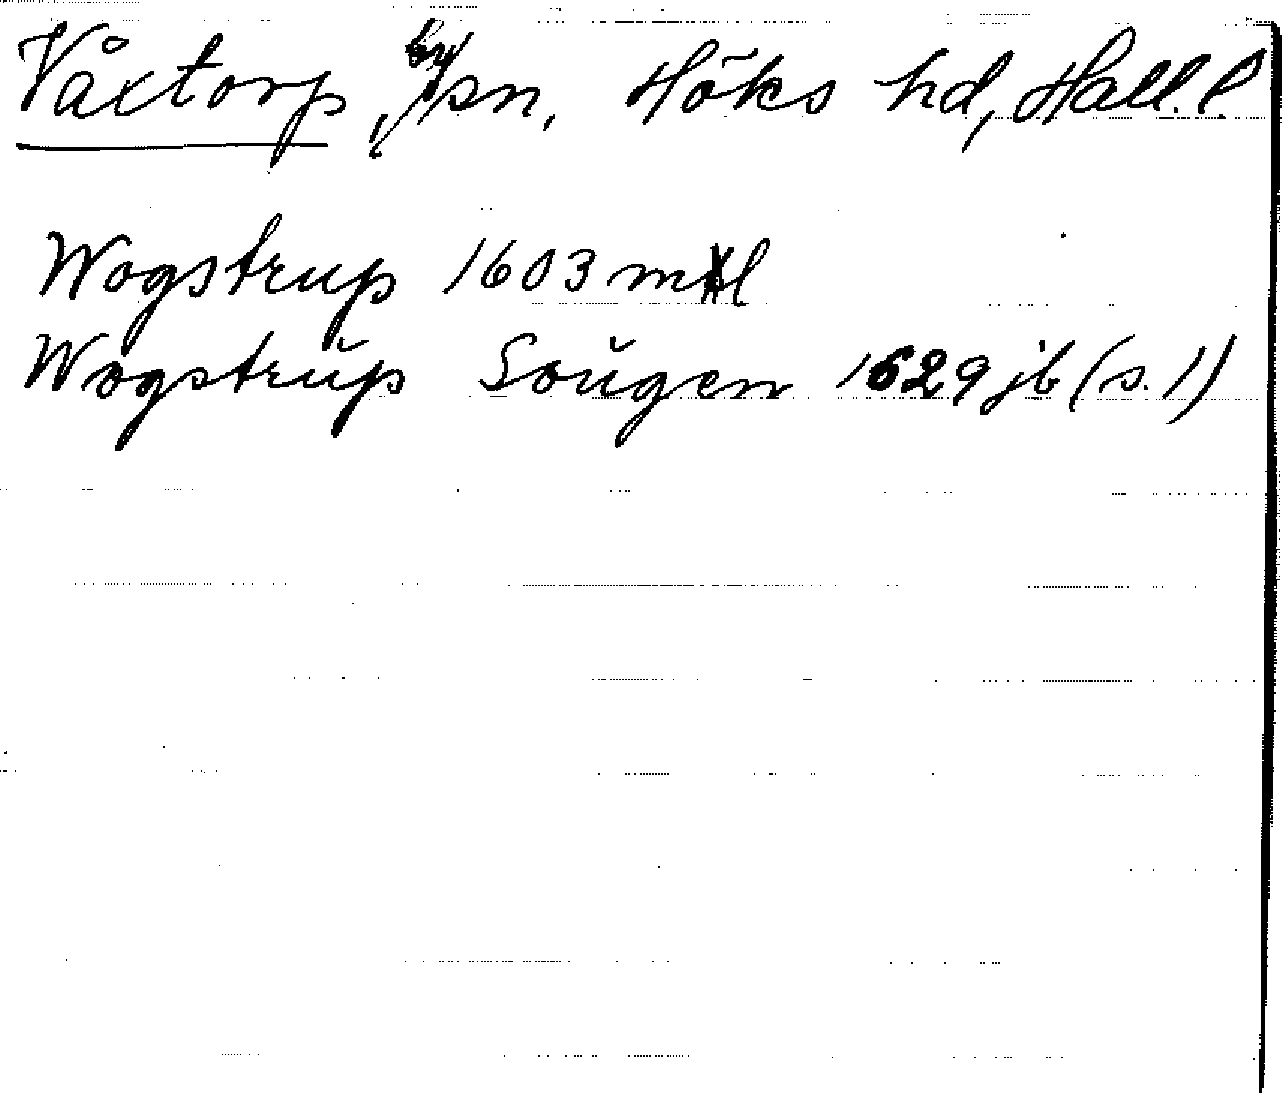 Våxtorp, by, sn, Höks hd, Hall. l.
Wogstrup 1603 ml
Wogstrŭp Soŭgen 1629 jb (s. 1)